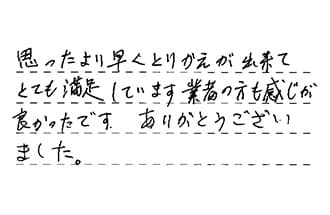 思ったより早くとりかえが出来て
とても満足しています業者の方も感じが
良かったです ありがとうござい
ました。